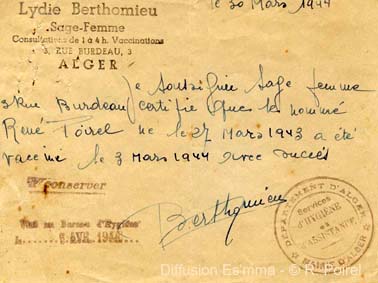 le 30 Mars 1944
Lydie Berthomieu
Sage-Femme
Consultations de 1 à 4 h. Vaccinations
3, RUE BURDEAU, 3
ALGER
Je soussignée Sage femme
3 Rue Burdeau certifie que le nommé
René Poirel né le 27 Mars 1943 a été
vacciné le 3 Mars 1944 avec succès
A conserver
Berthomieu
Visé au Bureau d'Hygiène
DÉPARTEMENT D'ALGER
Services
d'HYGIÈNE
et
d'ASSISTANCE
MAIRIE D'ALGER
Diffusion Es'mma - © R. Poirel